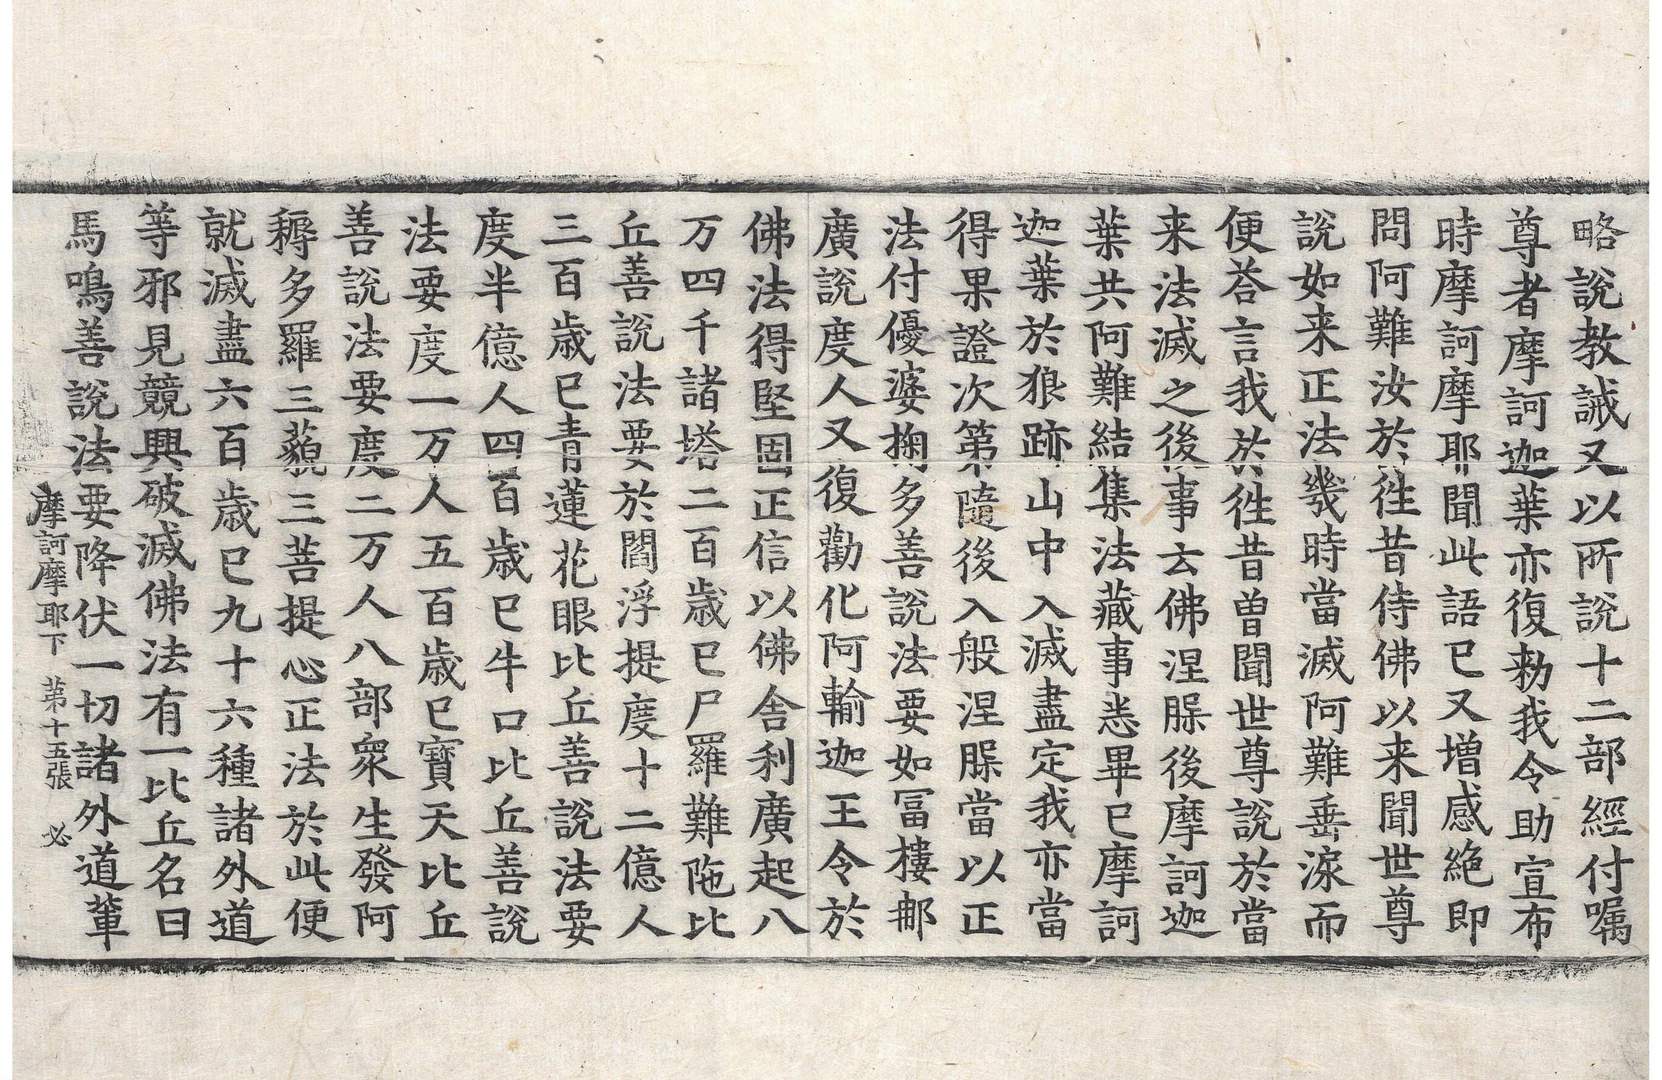 略説教誡又以所説十二部經付嘱
尊者摩訶迦葉亦復勑我令助宣布
時摩訶摩耶聞此語已又增感絶即
問阿難汝於徃昔侍佛以来聞世尊
説如来正法幾時當滅阿難垂淚而
便荅言我於徃昔曽聞世尊説於當
来法滅之後事云佛涅槃後摩訶迦
葉共阿難結集法藏事悉畢已摩訶
迦葉於狼跡山中入滅盡定我亦當
得果證次第隨後入般涅槃當以正
法付優婆掬多善説法要如冨樓那
廣説度人又復勸化阿輸迦王令於
佛法得堅固正信以佛舎利廣起八
万四千諸塔二百歳已尸羅難陁比
丘善説法要於閻浮提度十二億人
三百歳已青蓮花眼比丘善説法要
度半億人四百歳已牛口比丘善説
法要度一万人五百歳已寳天比丘
善説法要度二万人八部衆生發阿
耨多羅三藐三菩提心正法於此便
就滅盡六百歳已九十六種諸外道
等邪見競興破滅佛法有一比丘名曰
馬鳴善説法要降伏一切諸外道軰
摩訶摩耶下 第十五張 必